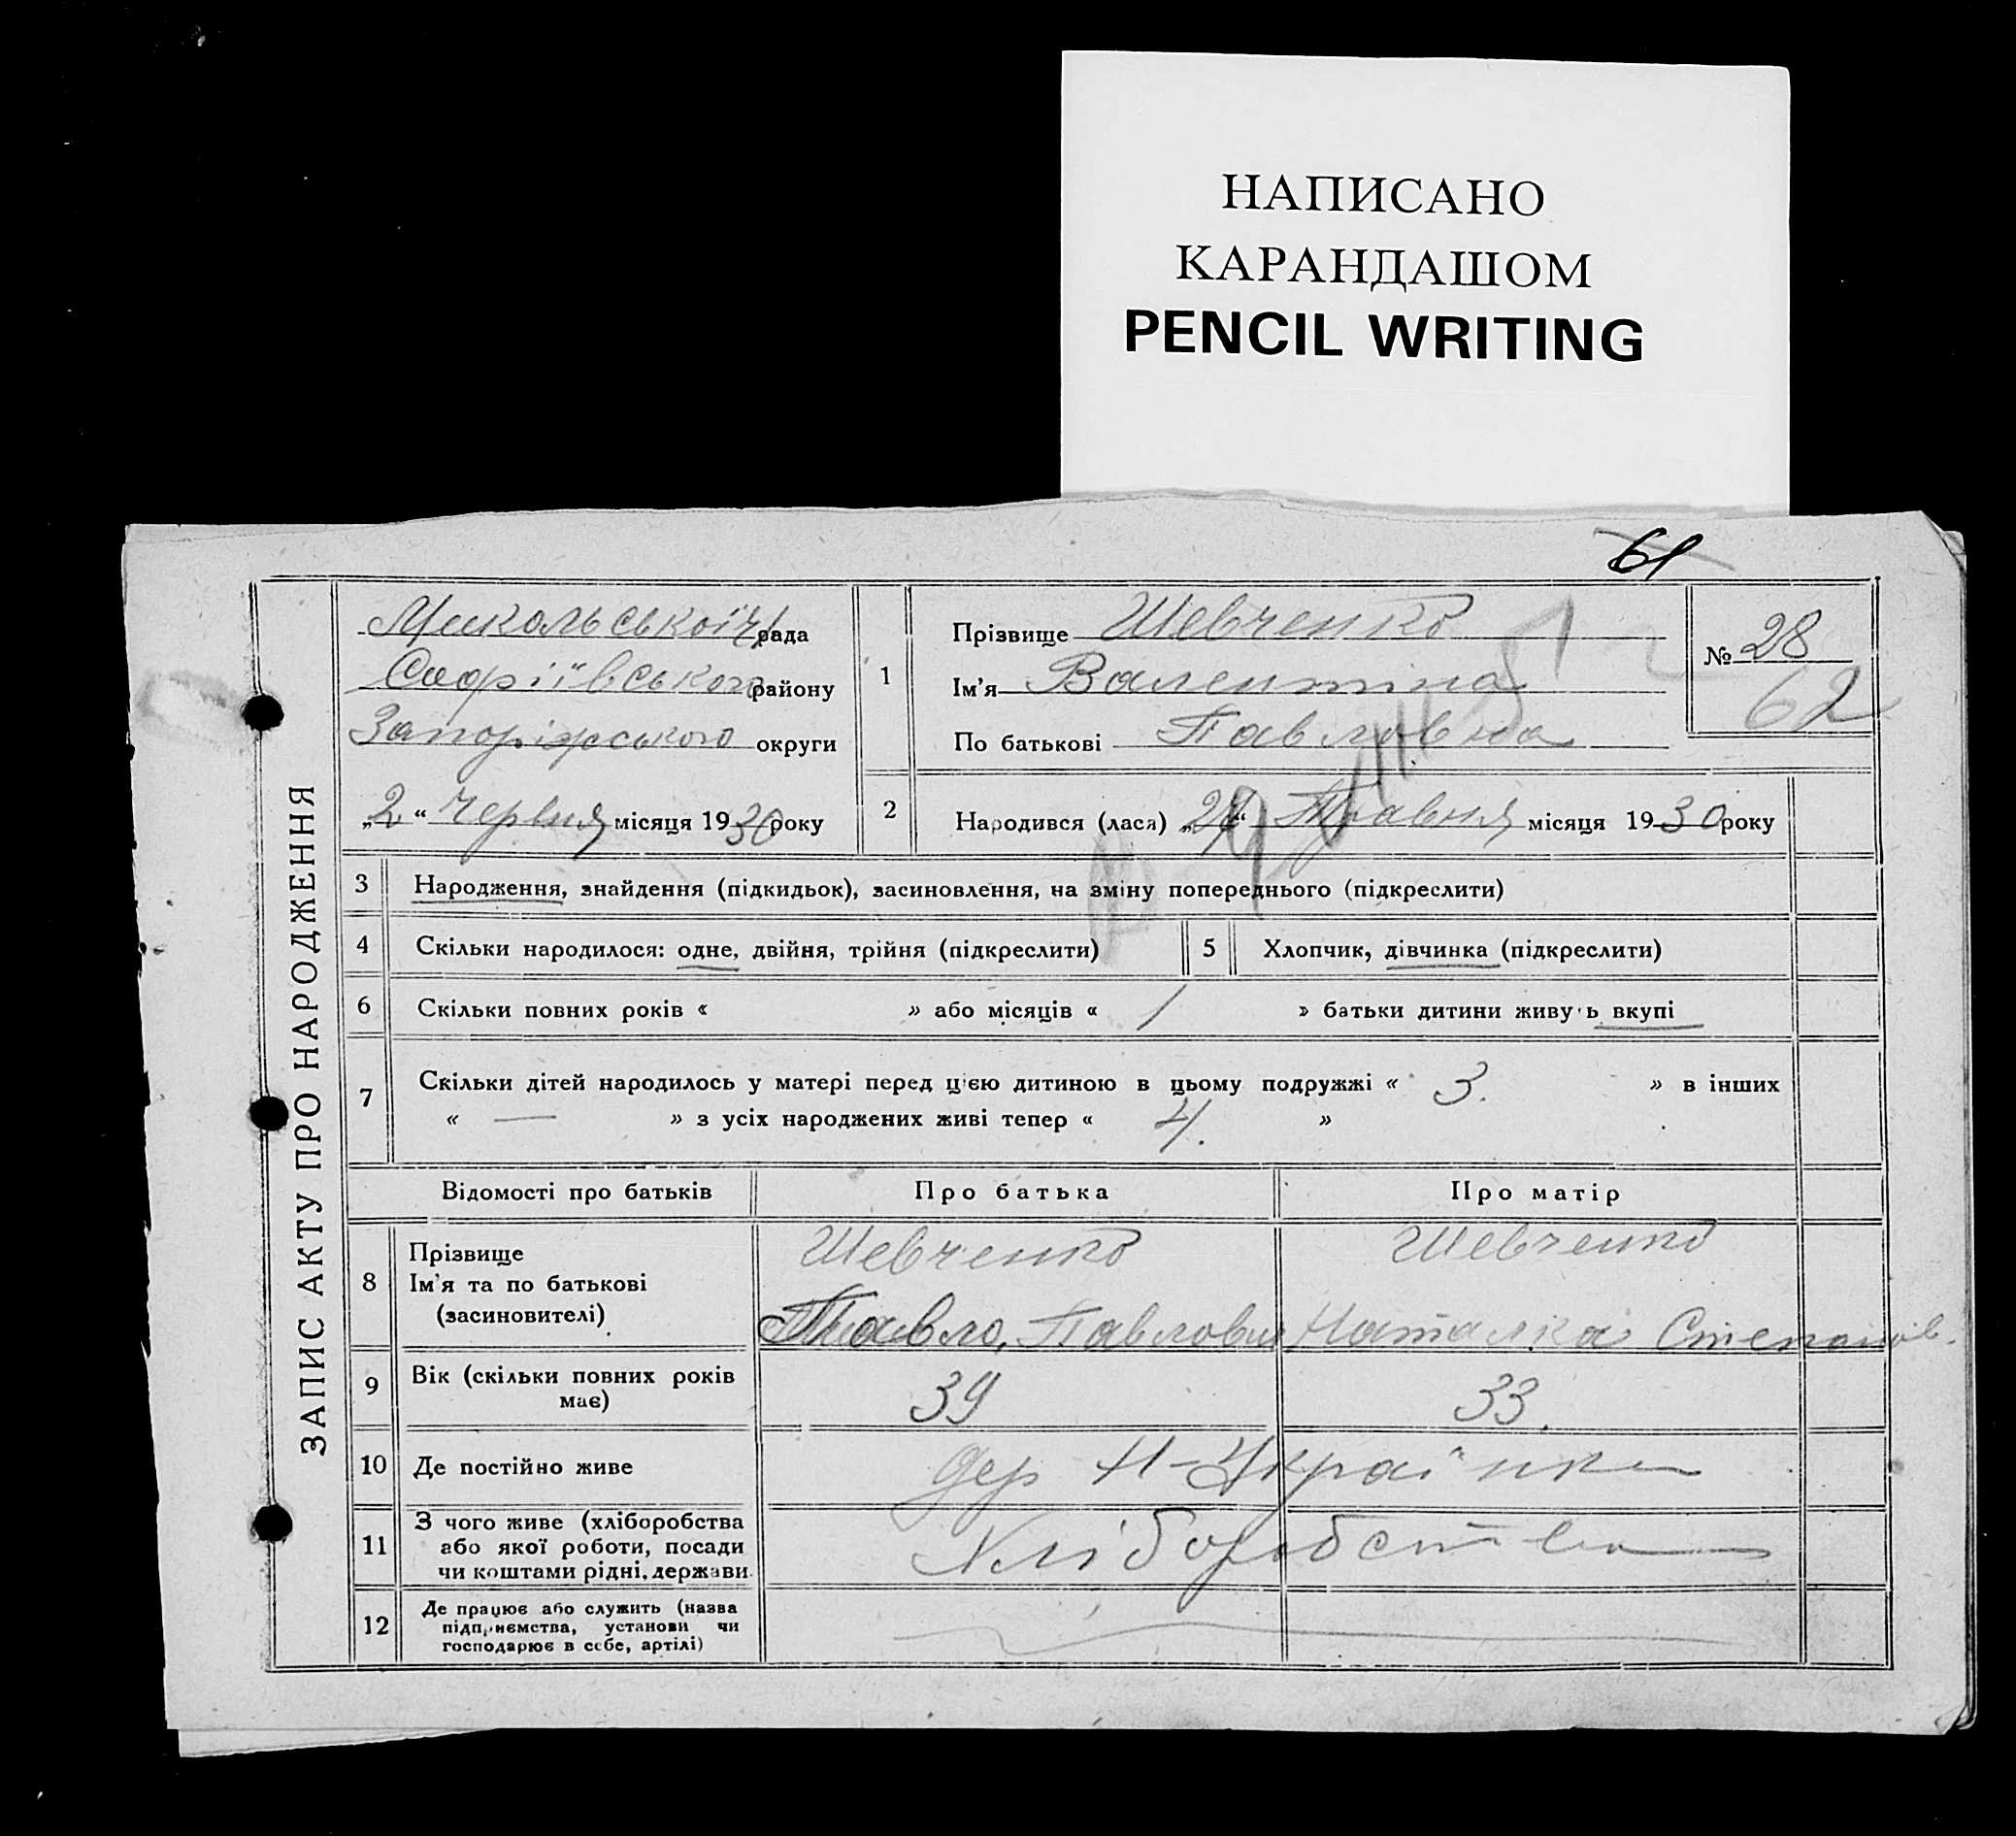 НАПИСАНО
КАРАНДАШОМ
PENCIL WRITING
61
ЗАПИС АКТУ ПРО НАРОДЖЕННЯ
Микольської рада
Софіївського району
Запоріжського округи
„2“ Червня місяця 1930 року
1
Прізвище Шевченко
Ім'я Валентина
По батькові Павловна
№ 28
62
2
Народився (лася) „ “ Травня місяця 1930 року
3 Народження, знайдення (підкидьок), засиновлення, на зміну попереднього (підкреслити)
4 Скільки народилося: одне, двійня, трійня (підкреслити) 5 Хлопчик, дівчинка (підкреслити)
6 Скільки повних років « » або місяців « / » батьки дитини живуть вкупі
7 Скільки дітей народилось у матері перед цією дитиною в цьому подружжі « 3. » в інших
« — » з усіх народжених живі тепер « 4. »
Відомості про батьків Про батька Про матір
8 Прізвище Шевченко Шевченко
Ім'я та по батькові
(засиновителі) Павло, Павлович Наталка Степанів.
9 Вік (скільки повних років
має) 39 33.
10 Де постійно живе дер Н-Українка
11 З чого живе (хліборобства
або якої роботи, посади
чи коштами рідні, держави. Хліборобство
12 Де працює або служить (назва
підприємства, установи чи
господарює в себе, артілі)